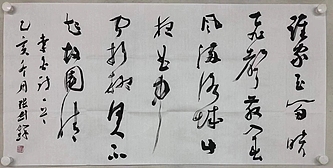 谁家玉笛暗
飞声散入春
风满洛城此
夜曲中闻
折柳何人不
起故园情
李白诗一首
乙亥年月